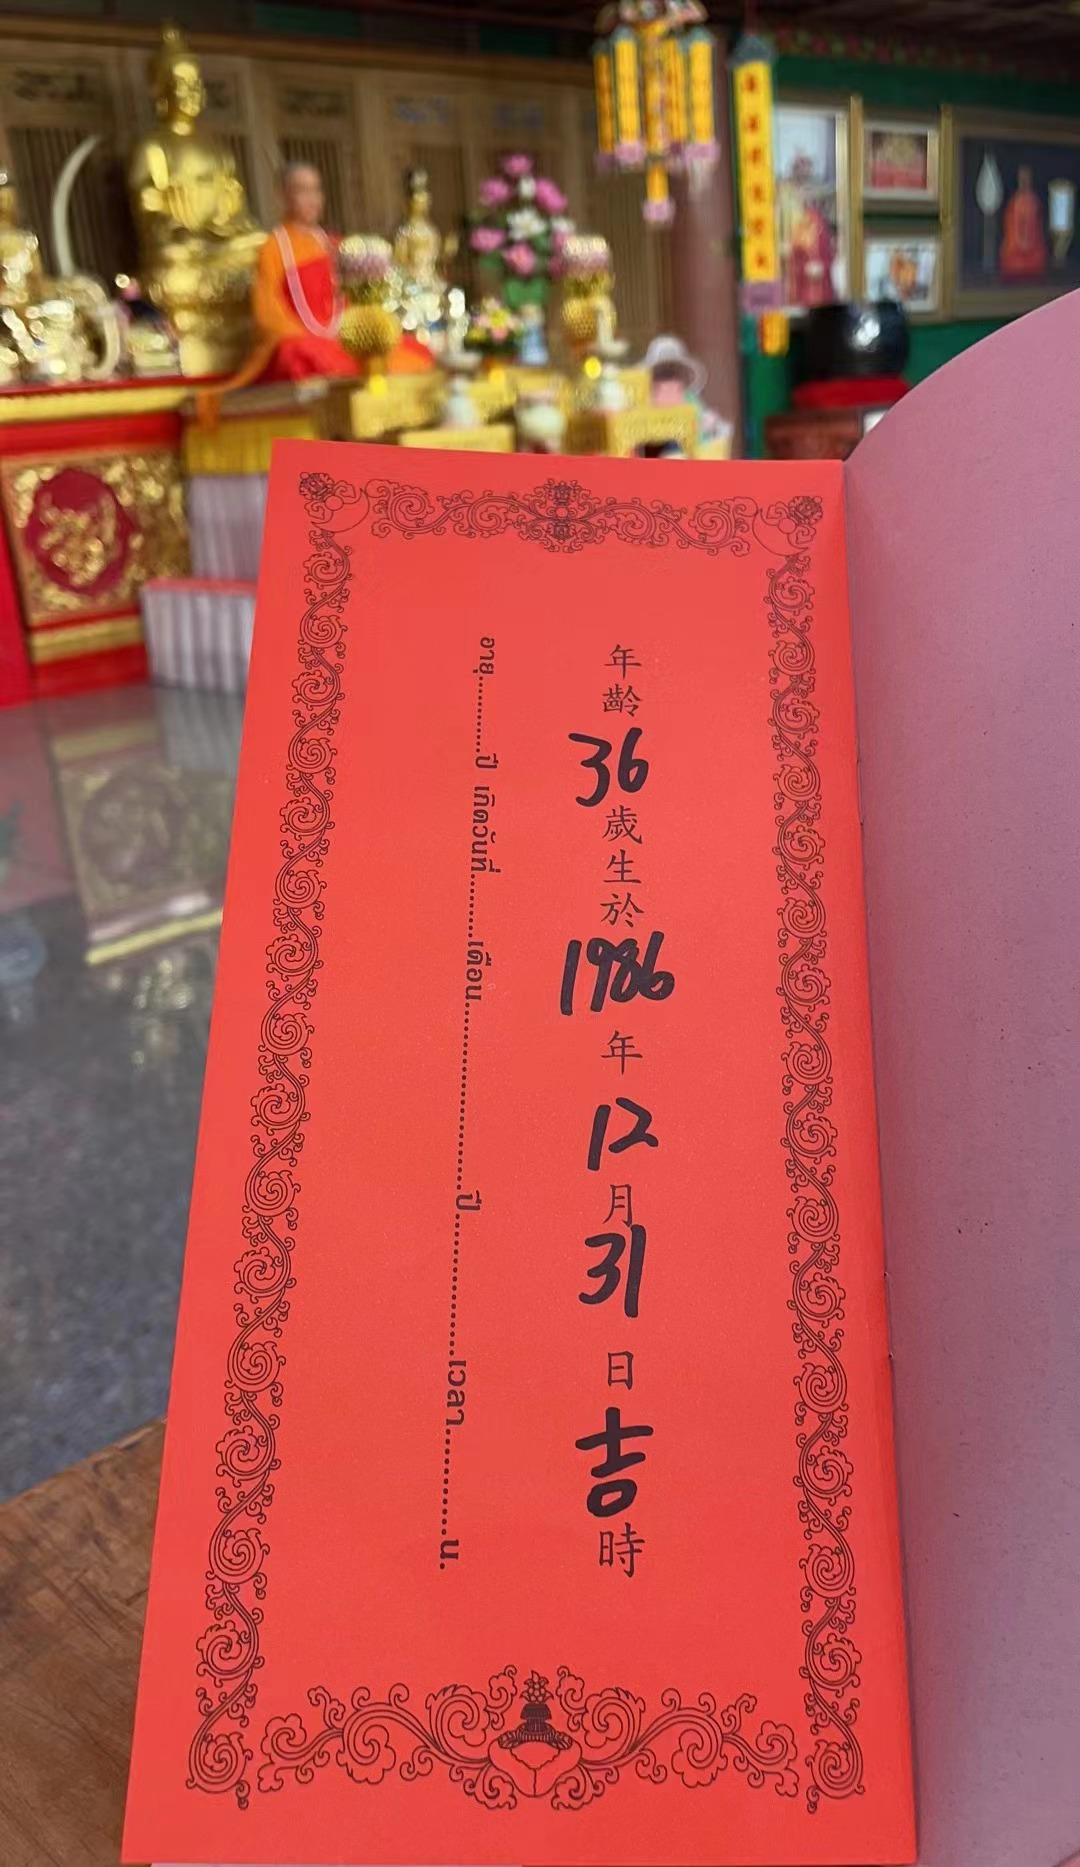 年齡36歲生於1986年12月31日吉時
อายุ..........ปี เกิดวันที่..........เดือน..............................ปี......................เวลา................น.